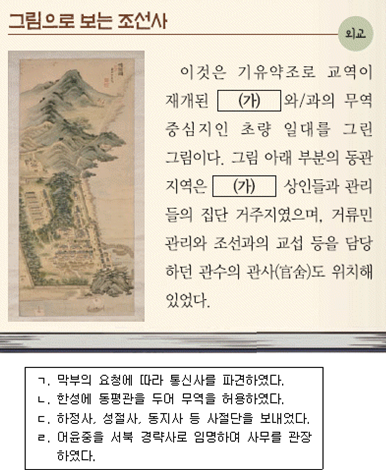 그림으로 보는 조선사
외교
이것은 기유약조로 교역이
재개된 (가) 와/과의 무역
중심지인 초량 일대를 그린
그림이다. 그림 아래 부분의 동관
지역은 (가) 상인들과 관리
들의 집단 거주지였으며, 거류민
관리와 조선과의 교섭 등을 담당
하던 관수의 관사(官舍)도 위치해
있었다.
ㄱ. 막부의 요청에 따라 통신사를 파견하였다.
ㄴ. 한성에 동평관을 두어 무역을 허용하였다.
ㄷ. 하정사, 성절사, 동지사 등 사절단을 보내었다.
ㄹ. 어윤중을 서북 경략사로 임명하여 사무를 관장
하였다.